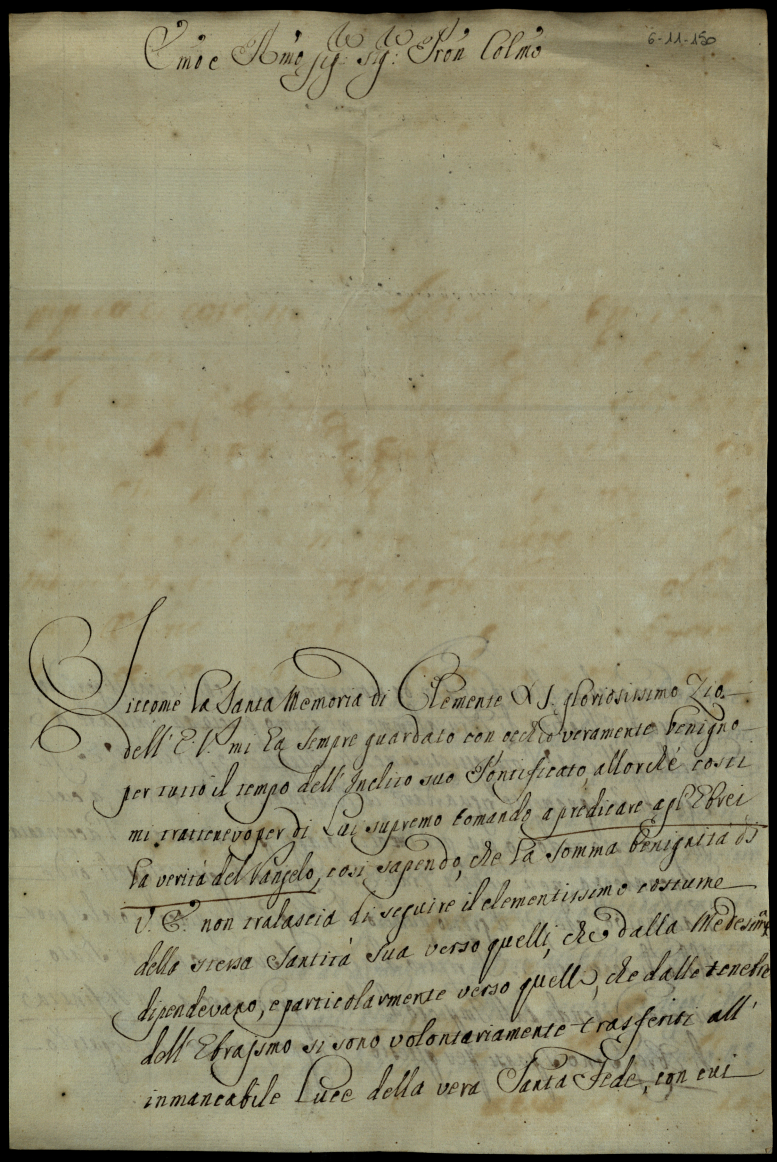 6-11-150
Emo e Rmo Sig: Sig: Pron Colmo
Siccome la Santa Memoria di Clemente XI. gloriosissimo Zio
dell' E. V. mi ha sempre guardato con occhio veramente benigno
per tutto il tempo dell' Inclito suo Pontificato, allorché costì
mi trattenevo per di Lui supremo comando a predicare agl' Ebrei
la verità del Vangelo, così sapendo, che la somma benignità di
V. E. non tralascia di seguire il clementissimo costume
della stessa Santità Sua verso quelli, che dalla Medesima
dipendevano, e particolarmente verso quelli, che dalle tenebre
dell' Ebraismo si sono volontariamente trasferiti all'
inmancabile Luce della vera Santa Fede, con cui